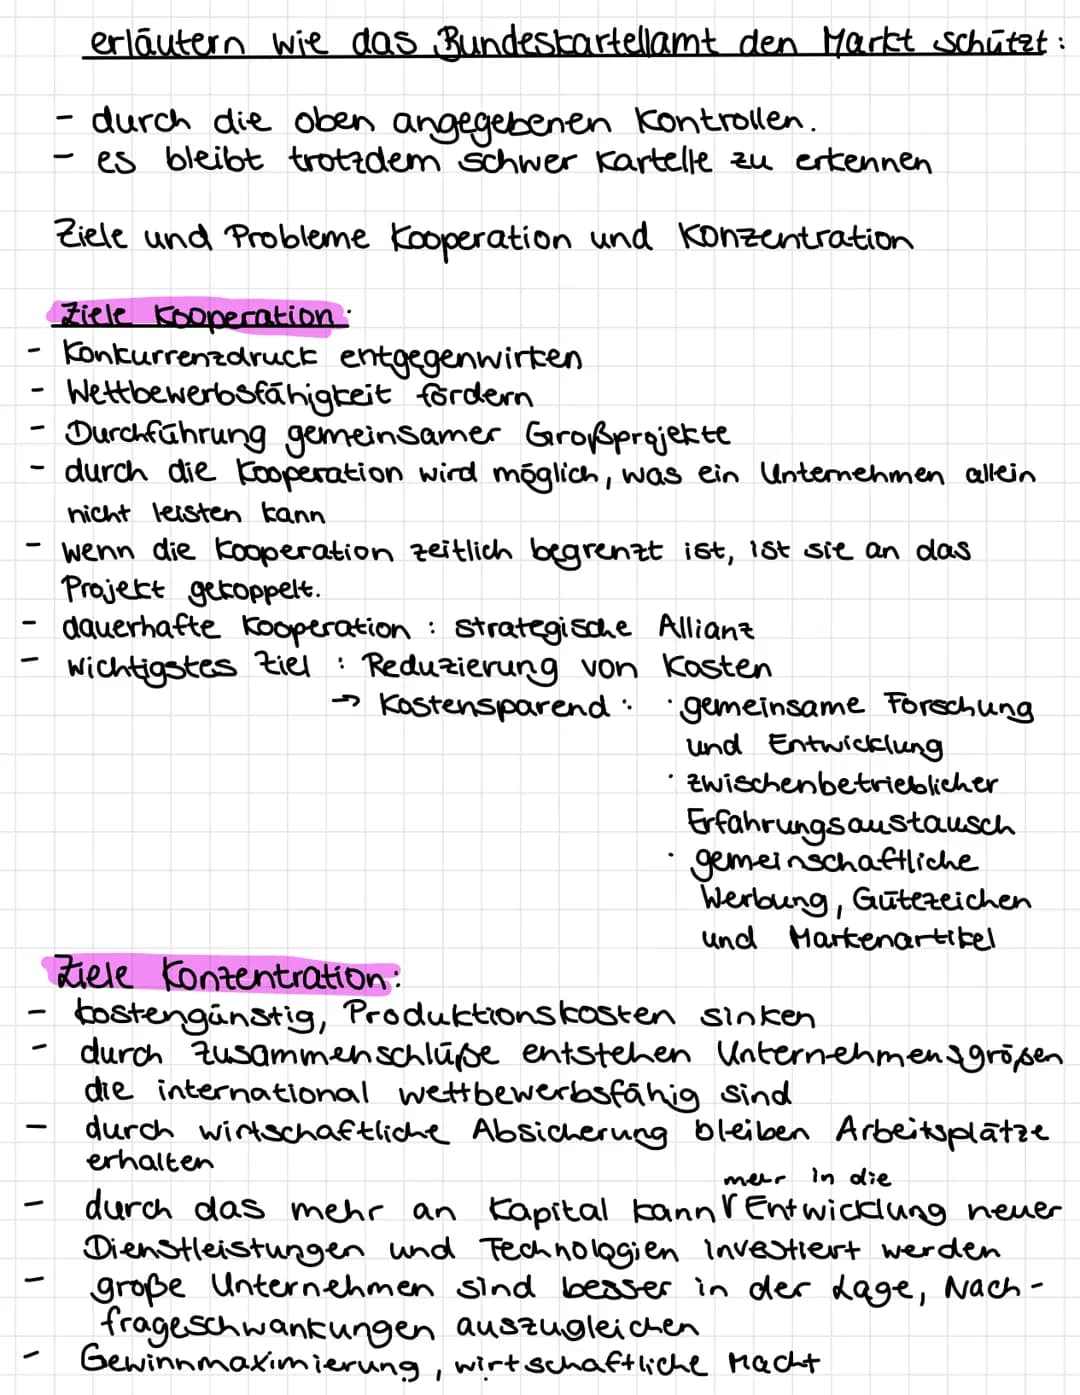 erläutern wie das Bundeskartellamt den Markt schützt:
- durch die oben angegebenen Kontrollen.
- es bleibt trotzdem schwer Kartelle zu erkennen
Ziele und Probleme Kooperation und Konzentration
Ziele Kooperation:
- Konkurrenzdruck entgegenwirken
- Wettbewerbsfähigkeit fördern
- Durchführung gemeinsamer Großprojekte
- durch die Kooperation wird möglich, was ein Unternehmen allein
nicht leisten kann
- wenn die Kooperation zeitlich begrenzt ist, ist sie an das
Projekt gekoppelt.
- dauerhafte Kooperation : strategische Allianz
- wichtigstes Ziel : Reduzierung von Kosten
→ Kostensparend : · gemeinsame Forschung
und Entwicklung
· zwischenbetrieblicher
Erfahrungsaustausch
· gemeinschaftliche
Werbung, Gütezeichen
und Markenartikel
Ziele Konzentration:
- kostengünstig, Produktionskosten sinken
- durch Zusammenschlüße entstehen Unternehmensgrößen
die international wettbewerbsfähig sind
- durch wirtschaftliche Absicherung bleiben Arbeitsplätze
erhalten
mehr in die
- durch das mehr an Kapital kann Entwicklung neuer
Dienstleistungen und Technologien investiert werden
- große Unternehmen sind besser in der Lage, Nach-
frageschwankungen auszugleichen
- Gewinnmaximierung, wirtschaftliche Macht